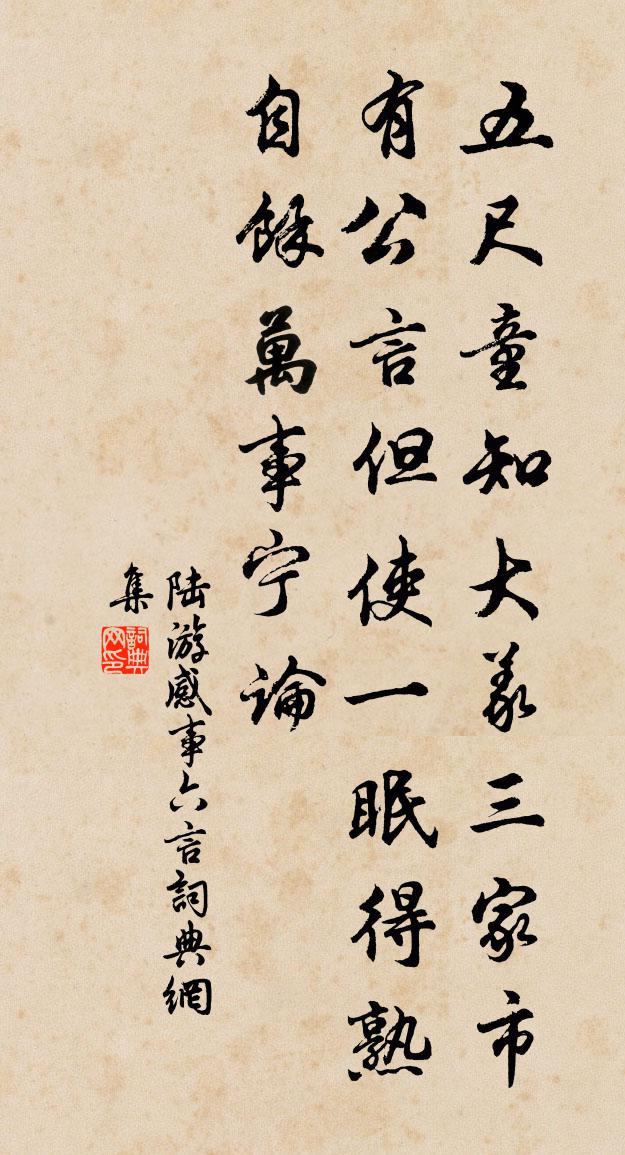 五尺童知大義三家市
有公言但使一眠得熟
自餘萬事宁論
陆游感事六言詞典網
集
詞典
网印